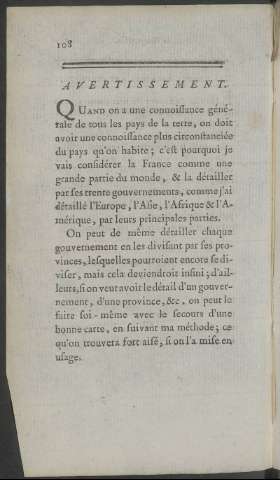 108
AVERTISSEMENT.
QUAND on a une connoissance géné-
rale de tous les pays de la terre, on doit
avoir une connoissance plus circonstanciée
du pays qu'on habite ; c'est pourquoi je
vais considérer la France comme une
grande partie du monde, & la détailler
par ses trente gouvernements, comme j'ai
détaillé l'Europe, l'Asie, l'Afrique & l'A-
mérique, par leurs principales parties.
On peut de même détailler chaque
gouvernement en les divisant par ses pro-
vinces, lesquelles pourroient encore se di-
viser, mais cela deviendroit infini ; d'ail-
leurs, si on veut avoir le détail d'un gouver-
nement, d'une province, &c, on peut le
faire soi-même avec le secours d'une
bonne carte, en suivant ma méthode ; ce
qu'on trouvera fort aisé, si on l'a mise en
usage.